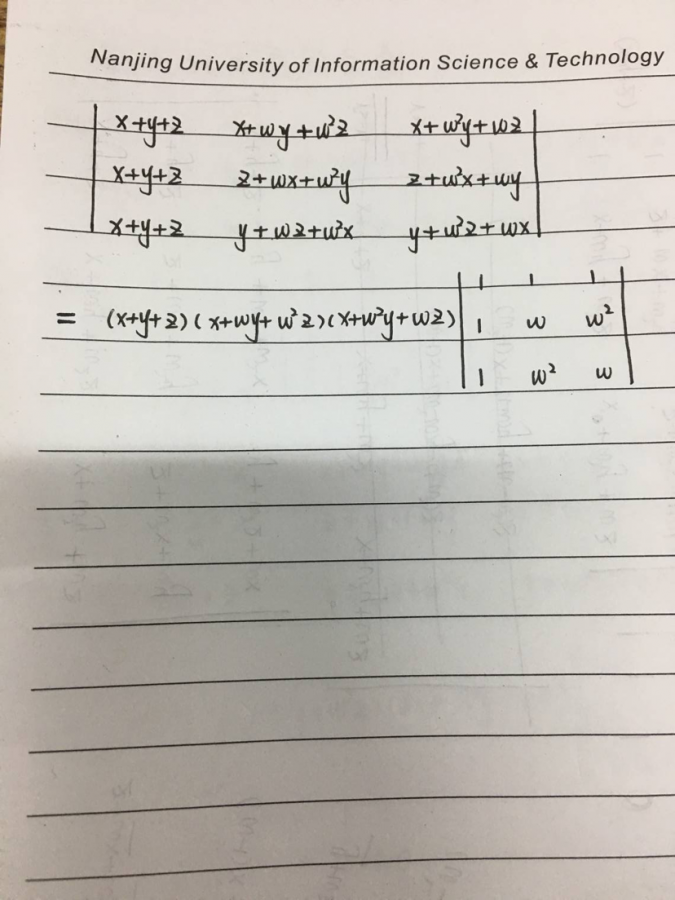 Nanjing University of Information Science & Technology
| x+y+z x+wy+w²z x+w²y+wz |
| x+y+z z+wx+w²y z+w²x+wy |
| x+y+z y+wz+w²x y+w²z+wx |
| 1 1 1 |
= (x+y+z)(x+wy+w²z)(x+w²y+wz) | 1 w w² |
| 1 w² w |